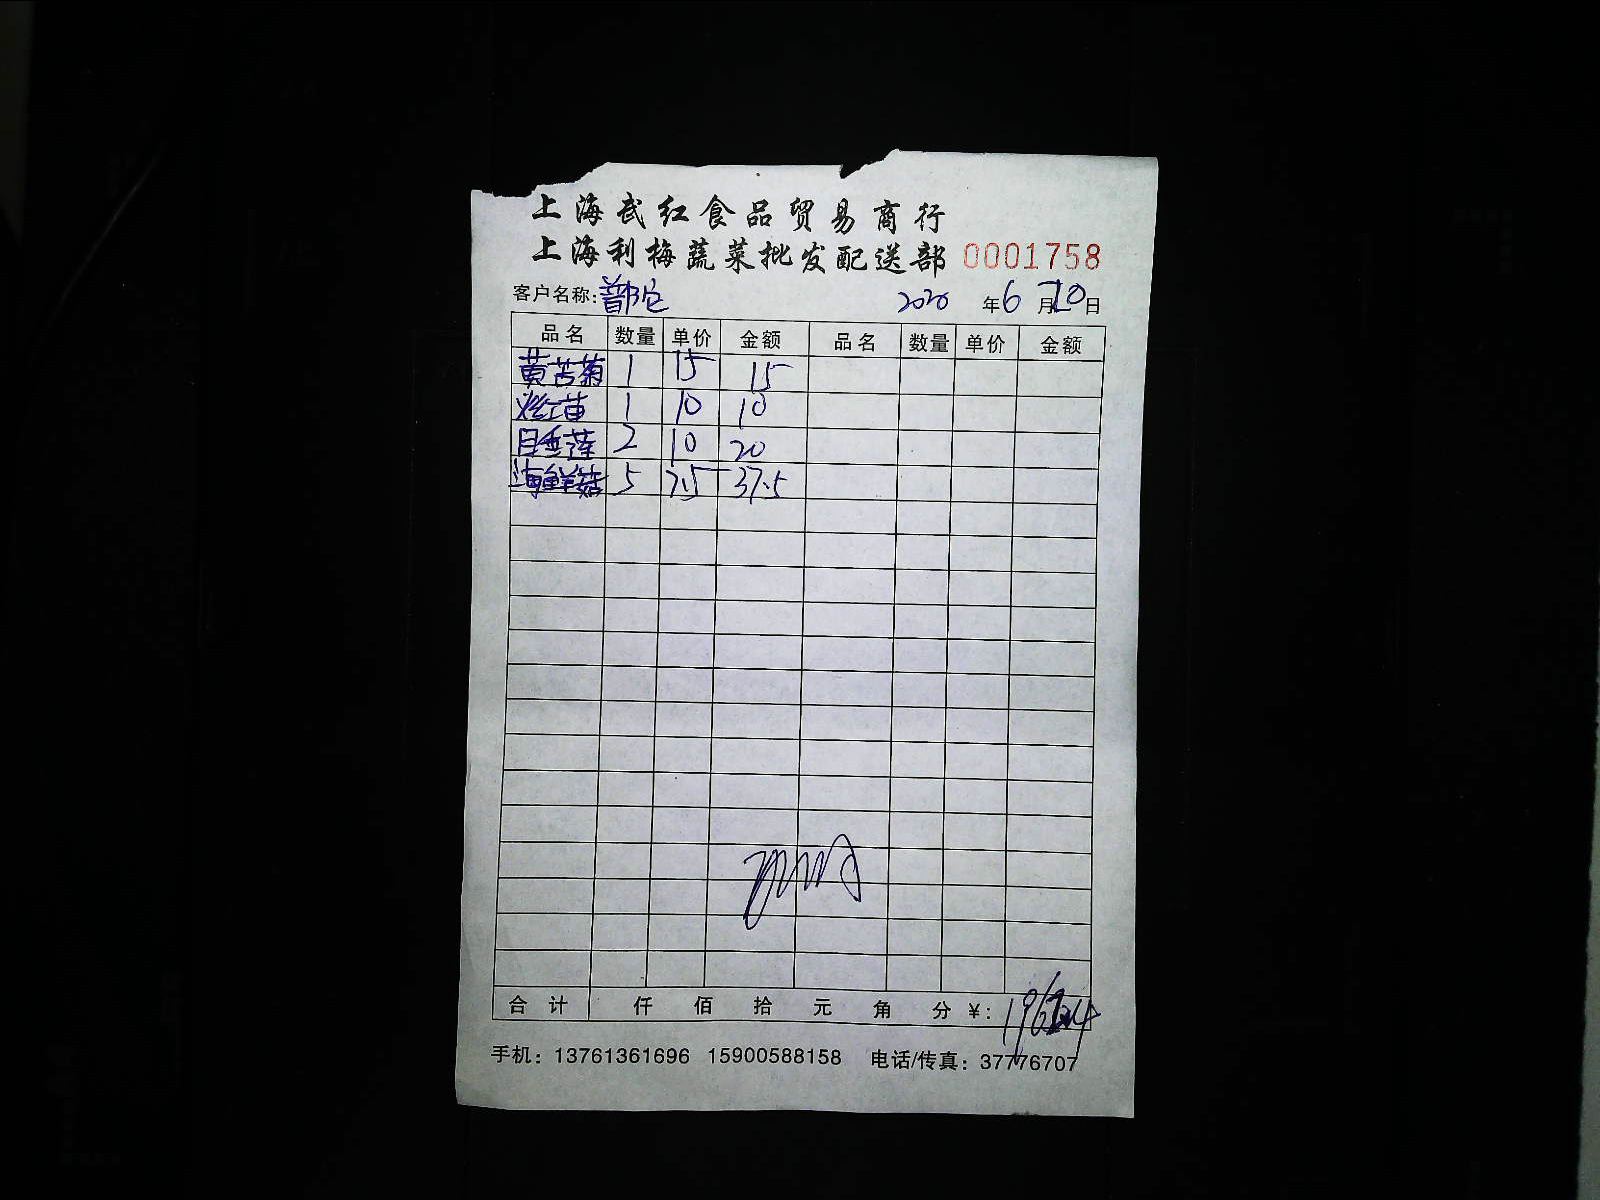 上海武红食品贸易商行
上海利梅蔬菜批发配送部 0001758
客户名称: 2020 年 6 月 10 日
品名 数量 单价 金额 品名 数量 单价 金额
黄苦菊 1 15 15
1 10 10
2 10 20
海鲜菇 5 7.5 37.5
合计 仟 佰 拾 元 角 分 ¥:
手机: 13761361696 15900588158 电话/传真: 37776707